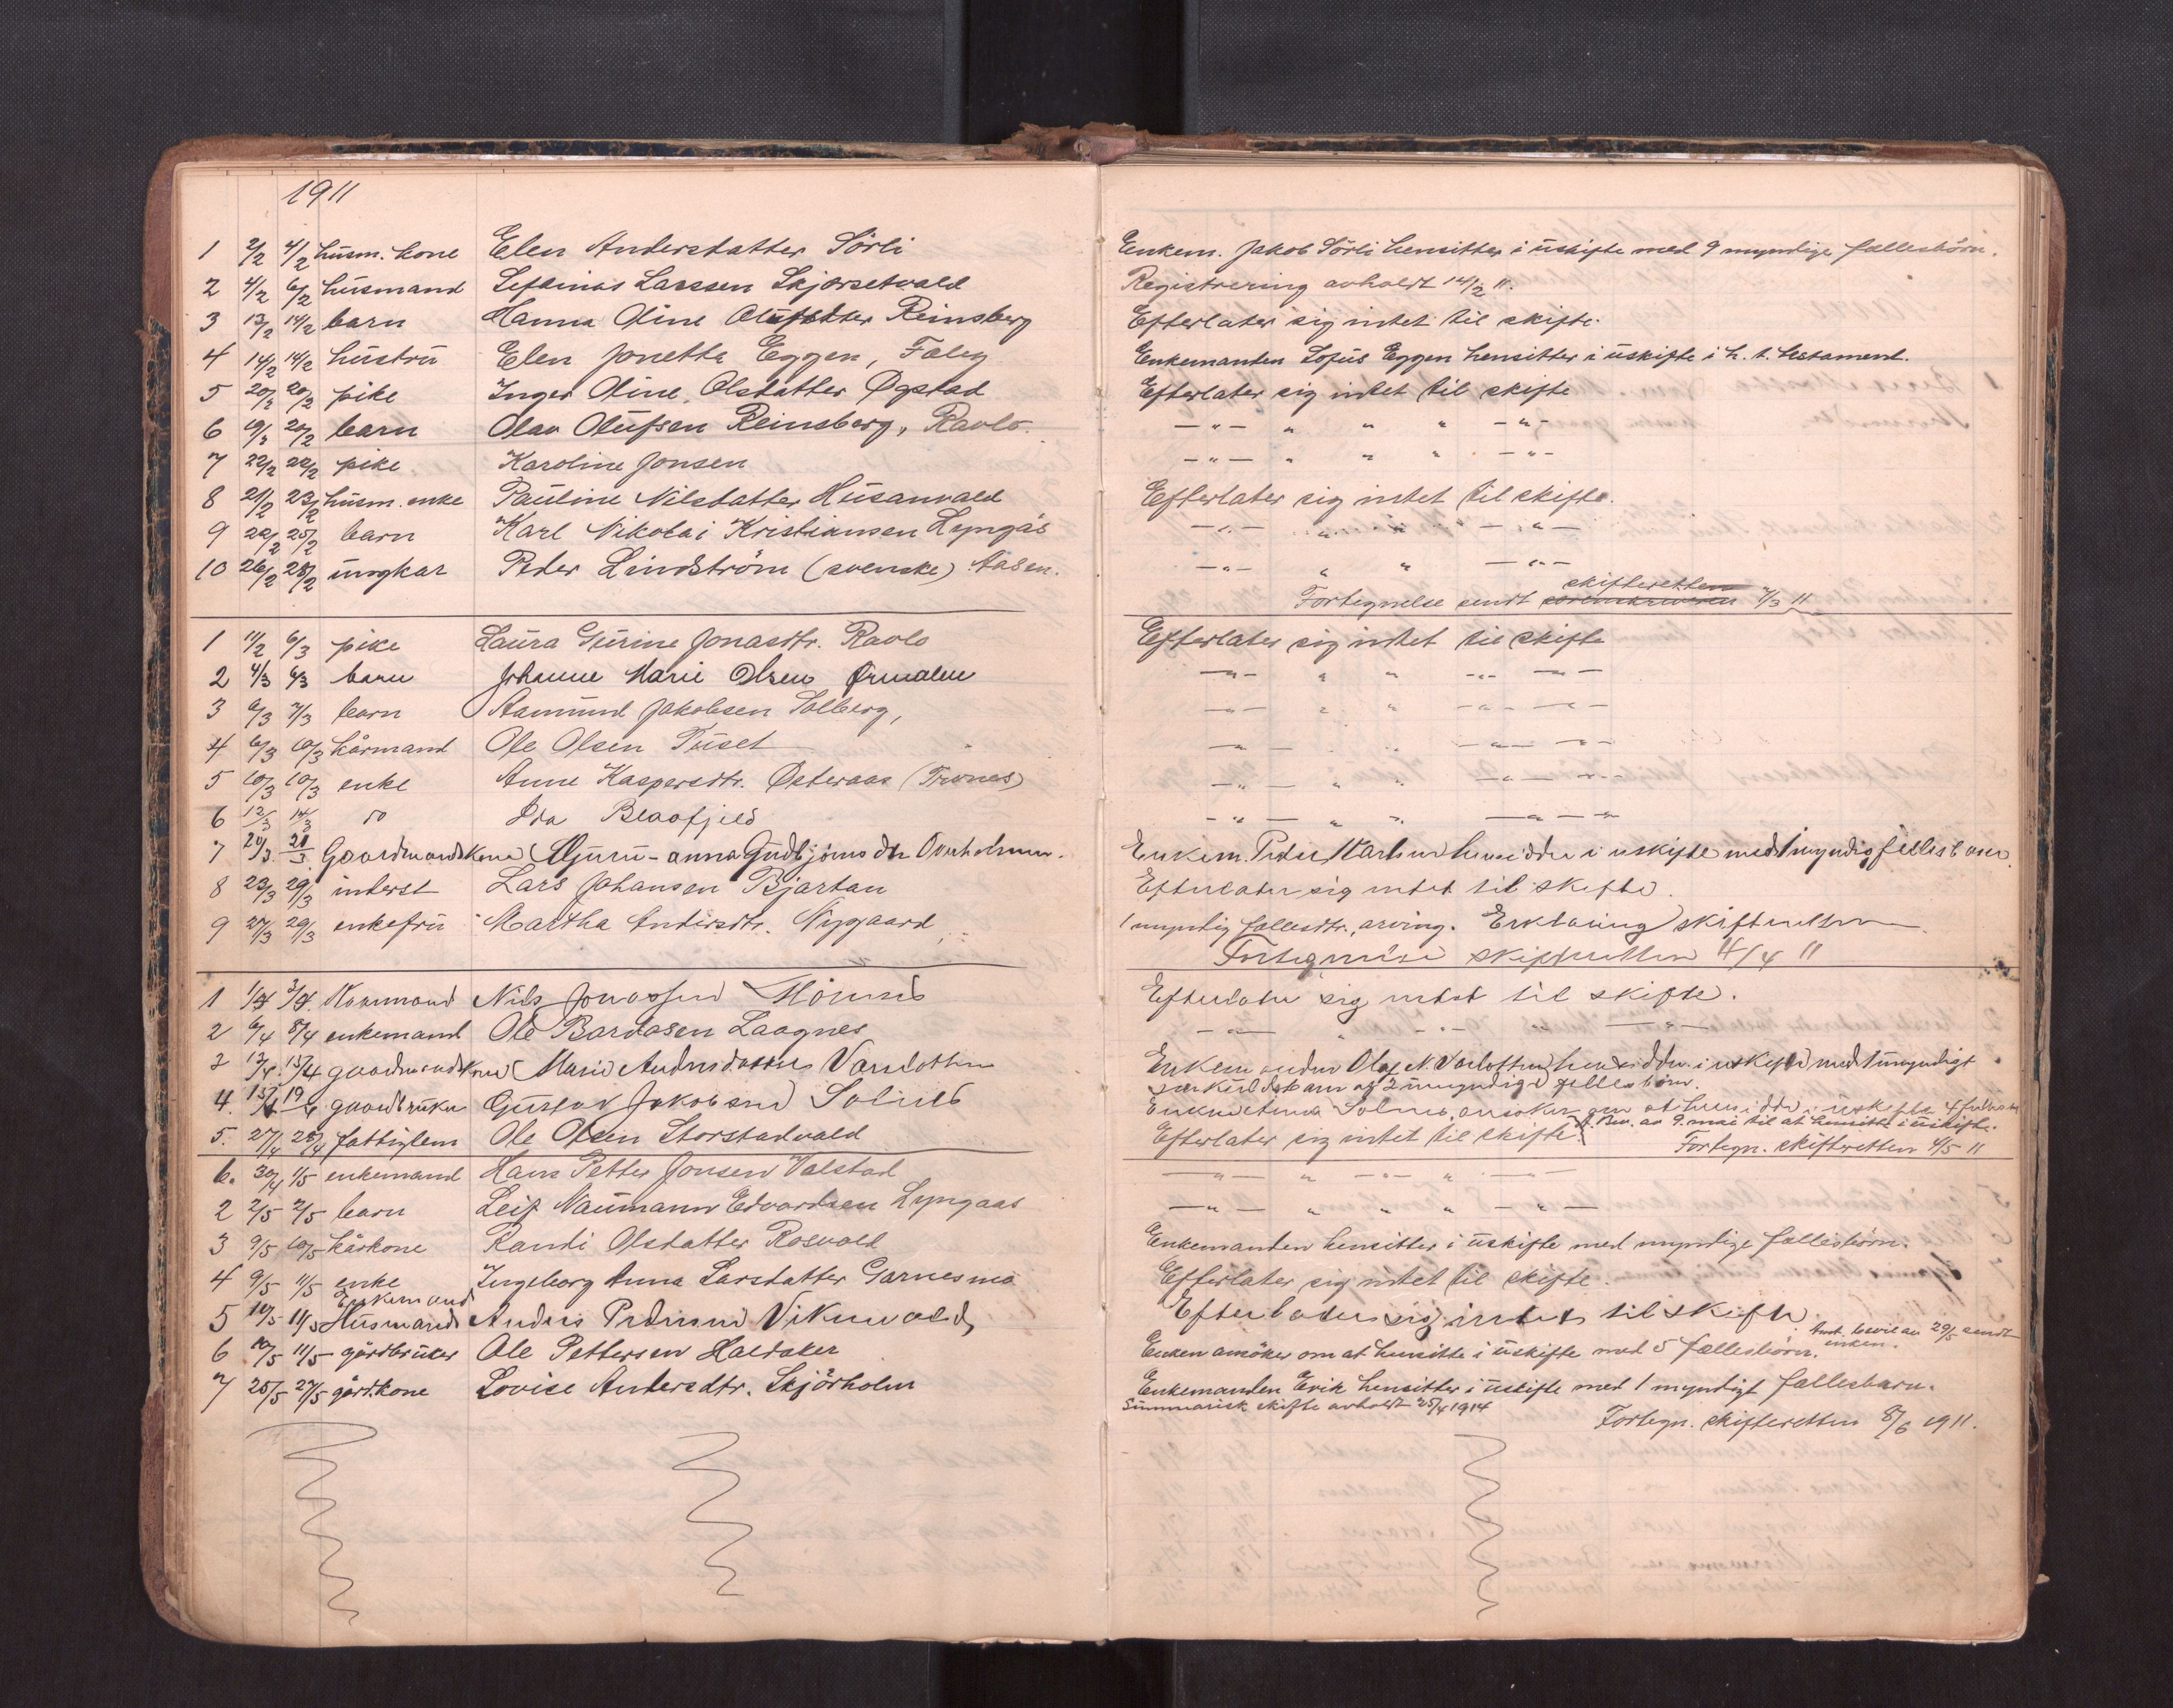 1911
1 2/2 4/2 husm. kone Elen Andersdatter Sörli Enkem. Jakob Sörli hensitter i uskifte med 9 myndige fællesbörn.
2 4/2 6/2 husmand Larssen Skjørsetvald Registrering avholdt 14/2 11.
3 13/2 14/2 barn Hanna Oline Olufsdtter Reinsberg Efterlater sig intet til skifte.
4 14/2 14/2 hustru Elen Jonetta Eggen, Faley Enkemanden Sofus Eggen hensitter i uskifte i h. t. testament.
5 20/2 20/2 pike Inger Oline Olsdatter Øgstad Efterlater sig intet til skifte
6 19/2 20/2 barn Olav Olufsen Reinsberg, Ravlo — " — " " " — " —
7 22/2 22/2 pike Karoline Jonsen — " — " " " — " —
8 21/2 23/2 husm. enke Pauline Nilsdatter Husanvald Efterlater sig intet til skifte.
9 22/2 25/2 barn Karl Nikolai Kristiansen Lyngås — " — " " — " —
10 26/2 28/2 ungkar Peder Lindström (svenske) Aasen. — " — " " — " —
skifteretten
Fortegnelse sendt sorenskriveren 7/3 11
1 11/2 6/3 pike Laura Gurine Jonasdtr. Ravlo Efterlater sig intet til skifte
2 4/3 6/3 barn Johanne Marie Olsen Ørmelen — " — " " — " — — " —
3 6/3 7/3 barn Aamund Jakobsen Solberg, — " — " " — " — — " —
4 6/3 10/3 kårmand Ole Olsen Tuset — " — " " — " — — " —
5 10/3 10/3 enke Anne Kaspersdtr. Østeraas (Trones) — " — " " — " — — " —
6 12/3 14/3 do Ida Blaafjeld — " — " " — " — " —
7 20/3 21/3 Gaardmandskone Guru-anna Gudbjönsdtr Overholmen. Enkem. Peder Martin hensidder i uskifte med 1 myndig felles barn.
8 23/3 29/3 inderst Lars Johansen Bjartan Efterlater sig intet til skifte.
9 27/3 29/3 enkefru Martha Andersdtr. Nygaard 1 myndig fællesdtr., arving. Erklæring skifteretten
Fortegnelse skifteretten 4/4 11
1 1/4 3/4 Kaarmand Nils Jonassen Efterlater sig intet til skifte.
2 6/4 8/4 enkemand Ole Bardosen Laagnes — " — " — " — " — " —
3 13/4 15/4 gaardmandskone Marie Andersdatter Varslotten Enkemanden Olaf N. Varslotten hensidder i uskifte med 1 umyndigt
særkuldsbarn og 2 umyndige felles börn.
4. 15/4 19/4 gaardbruker Gustav Jakobsen Solnes Enken Anna Solnes ansøker om at hensidde i uskifte 4
Bev. av 9. mai til at hensitte i uskifte.
5. 27/4 28/4 fattiglem Ole Olsen Storstadvald Efterlater sig intet til skifte. Fortegn. skifteretten 4/5 11
6. 30/4 1/5 enkemand Hans Petter Jonsen Valstad — " — " " — " — " — " —
2 2/5 2/5 barn Leif Naumann Edvardsen Lyngaas — " — " " " — " —
3 9/5 10/5 kårkone Randi Olsdatter Rosvold Enkemanden hensitter i uskifte med myndige fællesbörn.
4 9/5 11/5 enke Ingeborg Anna Larsdatter Garnesmo Efterlater sig intet til skifte.
Enkemand
5 10/5 11/5 Husmand Anders Pedersen Vikenvald Efterlader sig intet til skifte.
bevil av 29/5 sendt
enken.
6 10/5 11/5 gårdbruker Ole Pettersen Haldaker Enken ansöker om at hensitte i uskifte med 5 fællesbörn.
7 25/5 27/5 gårdkone Lovise Andersdtr. Skjörholm Enkemanden Erik hensitter i uskifte med 1 myndigt fællesbarn.
Summarisk skifte avholdt 25/4 1914
Fortegn. skifteretten 8/6 1911.